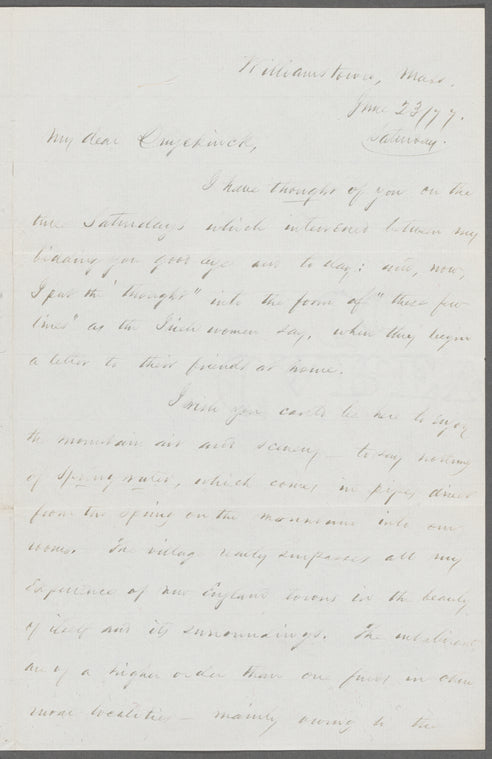 Williamstown, Mass.
June 23/77.
Saturday.
My dear Duyckinck,
I have thought of you on the
two Saturdays which intervened between my
bidding you good bye and to day: and, now,
I put the "thought" into the form of "these few
lines" as the Irish women say, when they begin
a letter to their friends at home.
I wish you could be here to enjoy
the mountain air and scenery – to say nothing
of Spring water, which comes in pipes direct
from the spring on the mountains into our
rooms. The village really surpasses all my
experience of New England towns in the beauty
of itself and its surroundings. The inhabitants
are of a higher order than one finds in other
rural localities – mainly owing to the